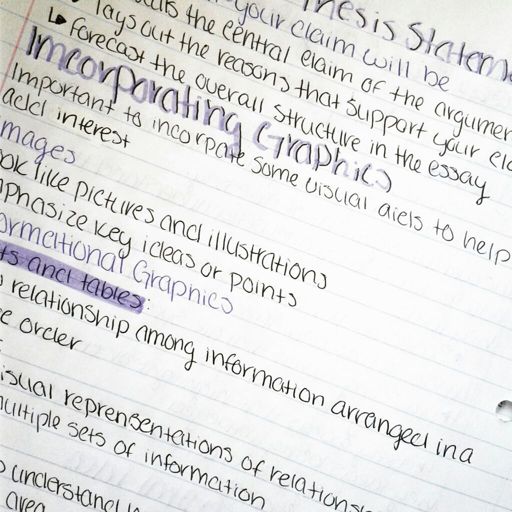 your claim will be
Thesis Statem
the central claim of the argumen
lays out the reasons that support your cla
↳ forecast the overall structure in the essay
Incorporating Graphics
Important to incorporate some visual aids to help
add interest
mages
ook like pictures and illustrations
phasize key ideas or points
ormational Graphics
ts and tables:
relationship among information arranged in a
e order
isual reprensentations of relations
multiple sets of information
understand
area